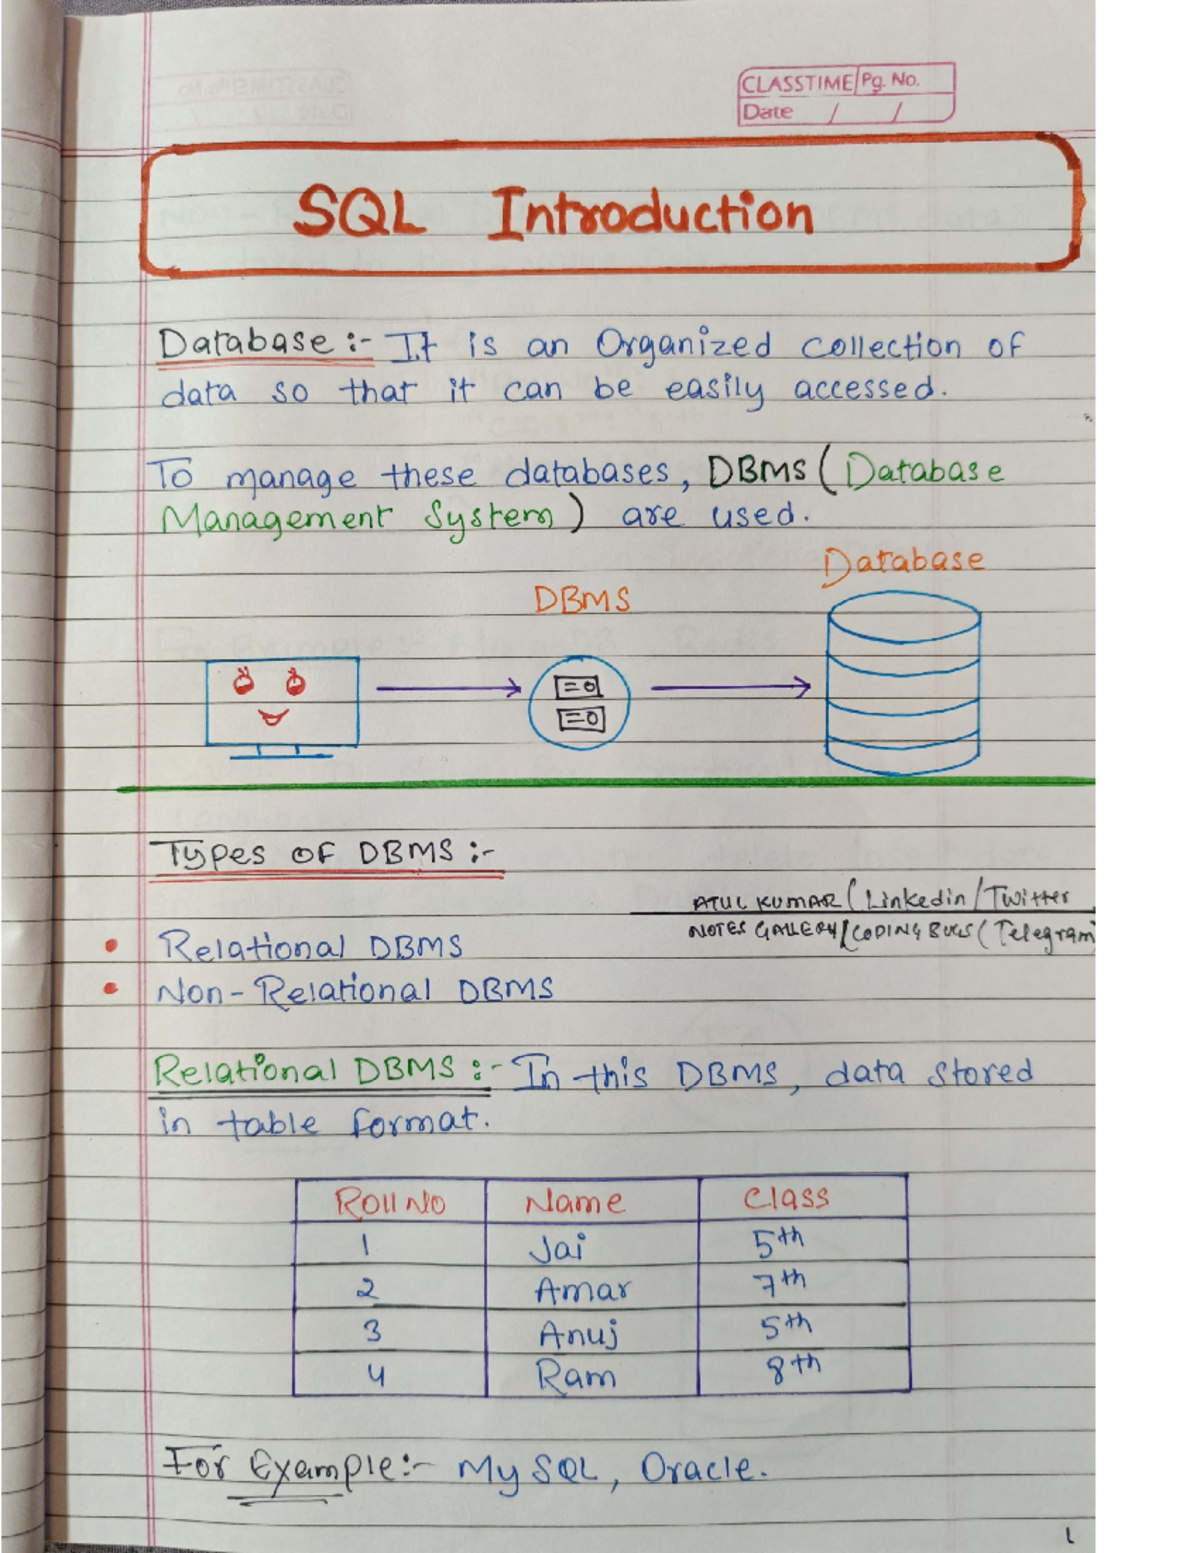 CLASSTIME Pg. No.
Date / /
SQL Introduction
Database :- It is an Organized collection of
data so that it can be easily accessed.
To manage these databases, DBMS (Database
Management System) are used.
Database
DBMS
Types OF DBMS :-
ATUL KUMAR (Linkedin/Twitter
NOTES GALLERY/CODING BUGS (Telegram)
• Relational DBMS
• Non-Relational DBMS
Relational DBMS :- In this DBMS, data stored
in table format.
Roll No Name Class
1 Jai 5th
2 Amar 7th
3 Anuj 5th
4 Ram 8th
For Example :- My SQL, Oracle.
1